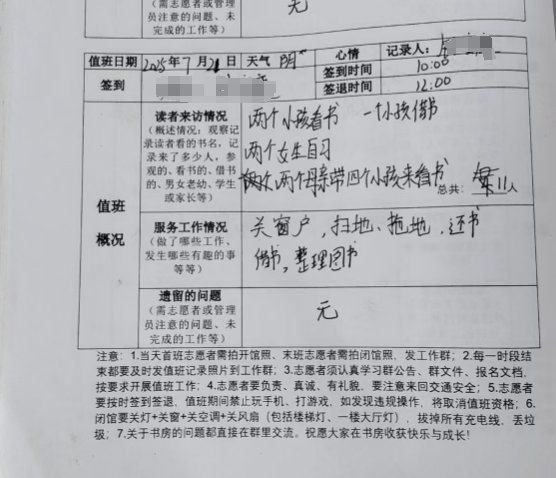 （需志愿者或管理
员注意的问题、未
完成的工作等）
无
值班日期 2025年7月21日 天气 阴 心情 记录人：
签到 签到时间 10:00
签退时间 12:00
读者来访情况
（概述情况：观察记
录读者看的书名，记
录来了多少人，参
观的、看书的、借书
的、男女老幼、学生
或家长等）
两个小孩看书 一个小孩借书
两个女生自习
两个母亲带四个小孩来看书
总共：11人
值班
概况
服务工作情况
（做了哪些工作、
发生哪些有趣的事
等等）
关窗户，扫地、拖地，还书
借书，整理图书
遗留的问题
（需志愿者或管理
员注意的问题、未
完成的工作等）
无
注意：1.当天首班志愿者需拍开馆照、末班志愿者需拍闭馆照，发工作群；2.每一时段结
束都要及时发值班记录照片到工作群；3.志愿者须认真学习群公告、群文件、报名文档，
按要求开展值班工作；4.志愿者要负责、真诚、有礼貌，要注意来回交通安全；5.志愿者
要按时签到签退，值班期间禁止玩手机、打游戏，如发现违规操作，将取消值班资格；6.
闭馆要关灯+关窗+关空调+关风扇（包括楼梯灯、一楼大厅灯），拔掉所有充电线，丢垃
圾；7.关于书房的问题都直接在群里交流。祝愿大家在书房收获快乐与成长！